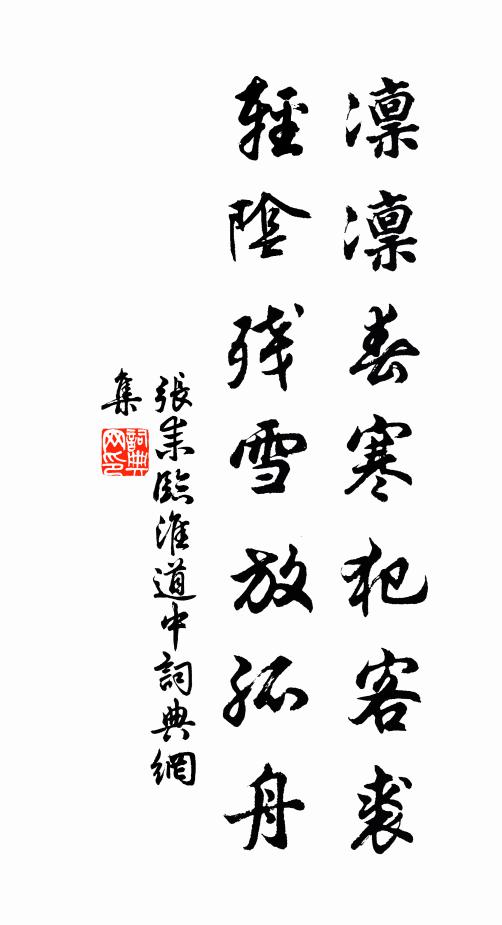 凛凛春寒犯客裘
輕陰残雪放孤舟
張耒臨淮道中詞典網
集
詞典網印